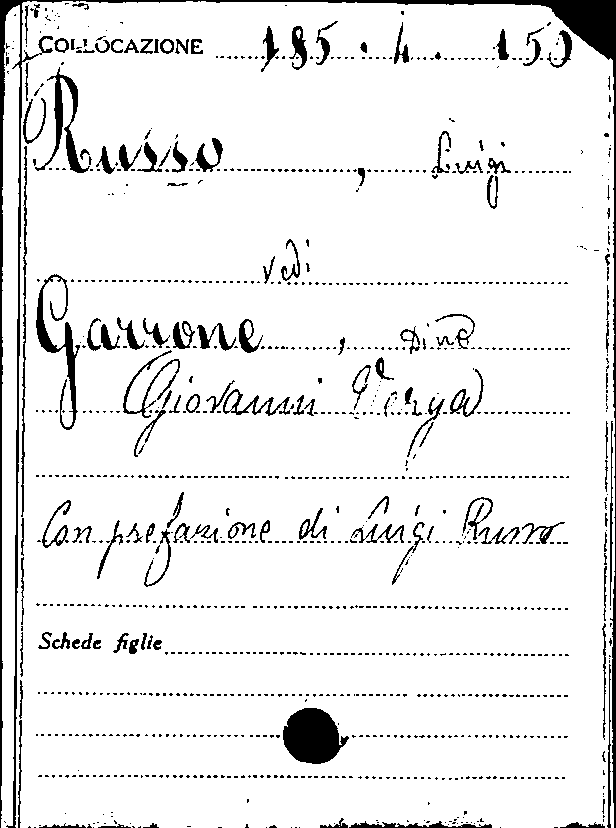 COLLOCAZIONE 185.4.150
Russo, Luigi
vedi
Garrone, Dino
Giovanni Verga
Con prefazione di Luigi Russo
Schede figlie